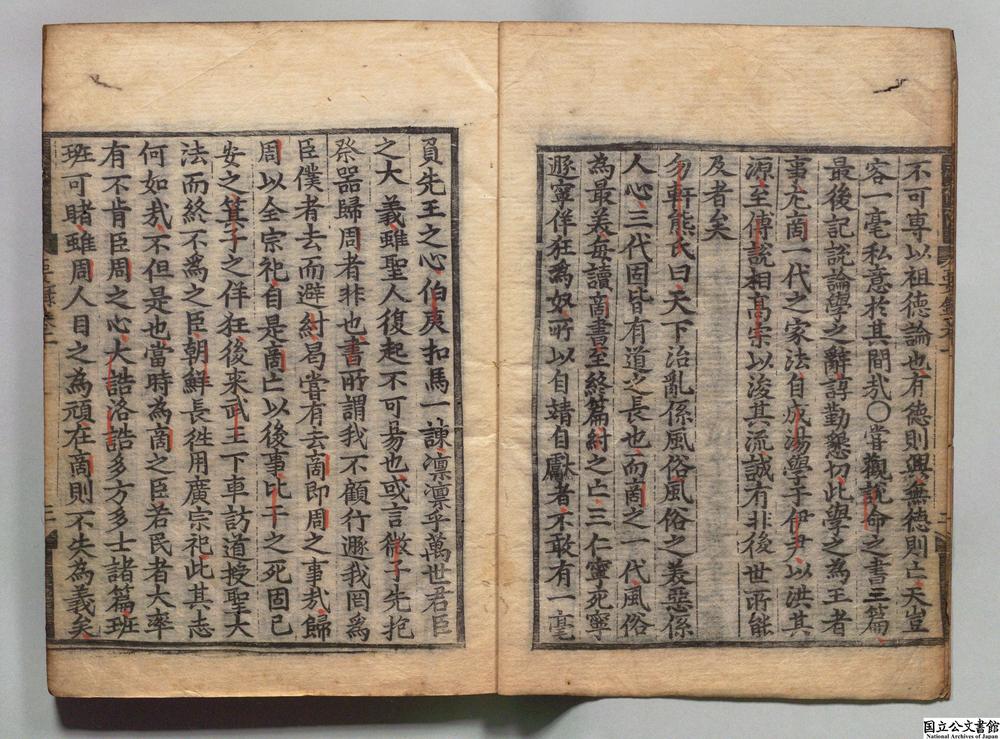 不可専以祖徳論也有徳則興無徳則亡天豈
容一毫私意於其間㢤○嘗觀說命之書三篇
最後記說論學之辭諄勤懇切此學之為王者
事尤商一代之家法自成湯學于伊尹以洪其
源至傅說相髙宗以浚其流誠有非後世所能
及者矣
勿軒熊氏曰天下治亂係風俗風俗之美惡係
人心三代固皆有道之長也而商之一代風俗
為最美每讀商書至終篇紂之亡三仁寧死寧
遯寧佯狂為奴所以自靖自獻者不敢有一毫
負先王之心伯夷扣馬一諫凛凛乎萬世君臣
之大義雖聖人復起不可易也或言微子先抱
祭器歸周者非也書所謂我不顧行遯我罔為
臣僕者去而避紂曷嘗有去商即周之事㢤歸
周以全宗祀自是商亡以後事比干之死固已
安之箕子之佯狂後来武王下車訪道授聖大
法而終不為之臣朝鮮長徃用廣宗祀此其志
何如㢤不但是也當時為商之臣若民者大率
有不肯臣周之心大誥洛誥多方多士諸篇班
班可睹雖周人目之為頑在商則不失為義矣
国立公文書館
National Archives of Japan